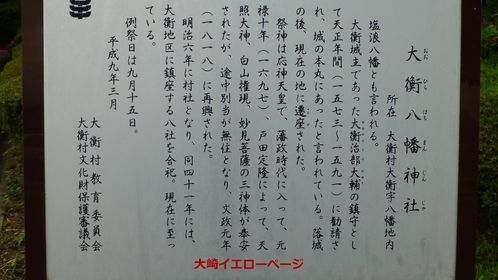 大衡八幡神社
おお ひら はち まん じん じゃ
所在　大衡村大衡字八幡地内
塩浪八幡とも言われる。
大衡城主であった大衡治部大輔の鎮守とし
て天正年間（一五七三～一五九一）に勧請さ
れ、城の本丸にあったと言われている。落城
の後、現在の地に遷座された。
祭神は応神天皇で、藩政時代に入って、元
禄十年（一六九七）、戸田定隆によって、天
照大神、白山権現、妙見菩薩の三神体が奉安
されたが、途中別当が無住となり、文政元年
（一八一八）に再興された。
明治六年に村社となり、同四十一年には、
大衡地区に鎮座する八社を合祀。現在に至っ
ている。
例祭日は九月十五日。
平成九年三月
大衡村教育委員会
大衡村文化財保護審議会
大崎イエローページ